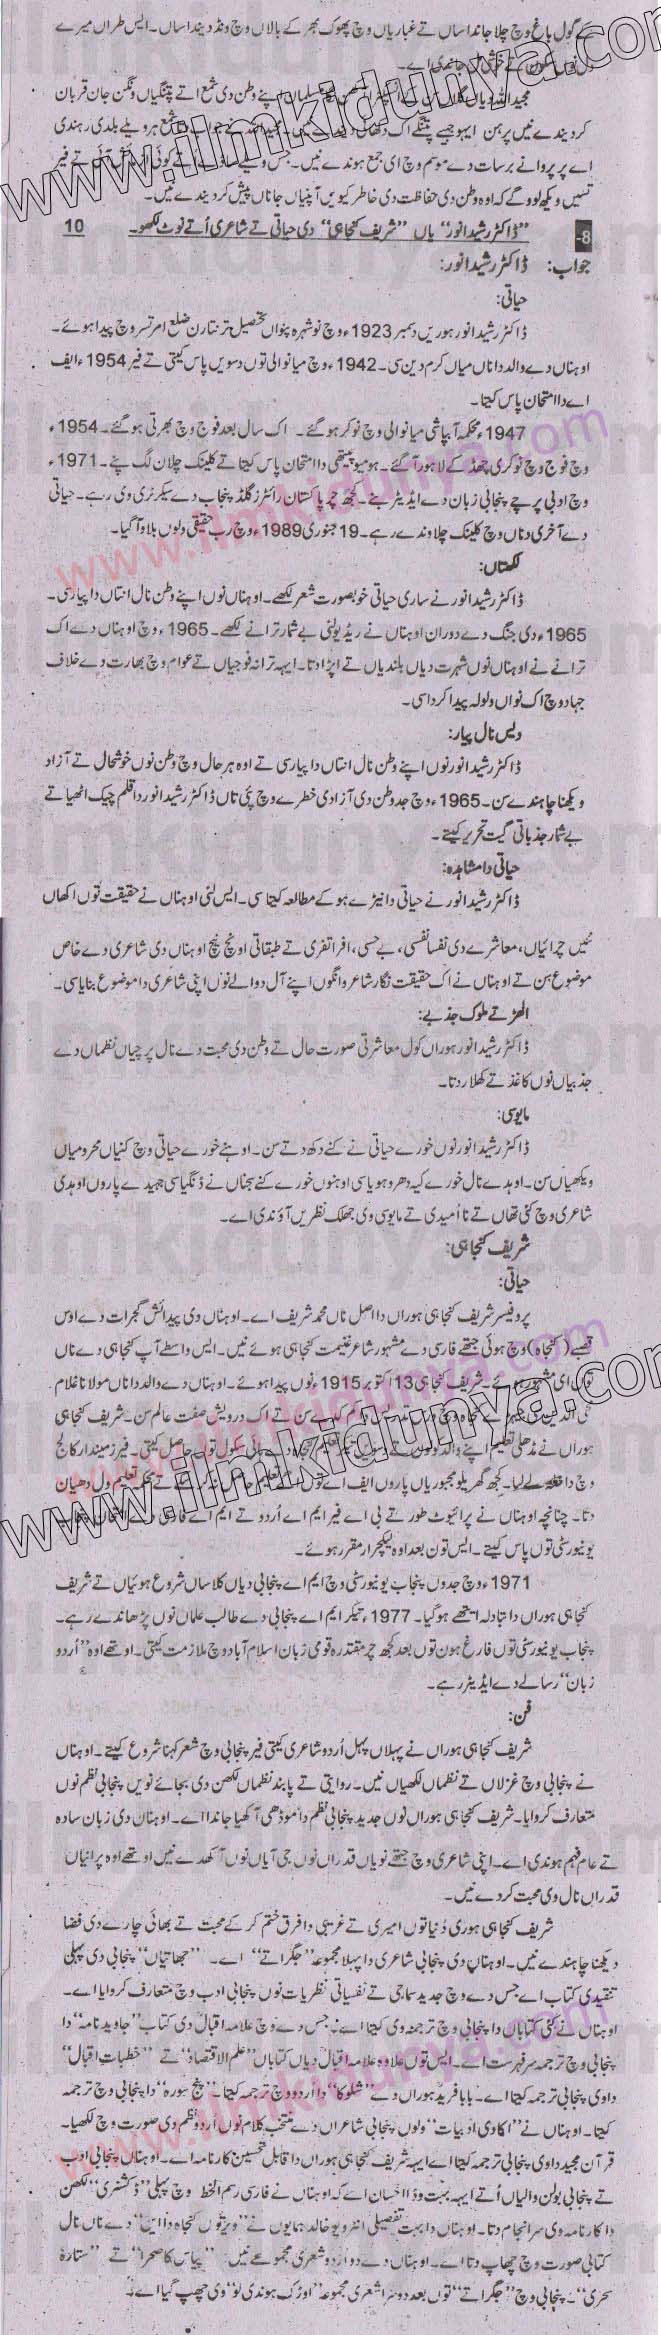 دے گول باغ وچ چلا جاندا ساں تے غباریاں وچ پھوک بھر کے بالاں وچ ونڈ دیندا ساں۔ ایس طراں میرے
کر دیندے نیں پر ہن
اے پر پروانے برسات دے موسم وچ ای جمع ہوندے نیں۔
تسیں ویکھ لوو گے کہ اوہ وطن دی حفاظت دی خاطر کیویں آپنیاں جاناں پیش کر دیندے نیں۔
8- "ڈاکٹر رشید انور" یاں "شریف کنجاہی" دی حیاتی تے شاعری اُتے نوٹ لکھو۔ 10
جواب: ڈاکٹر رشید انور:
حیاتی:
ڈاکٹر رشید انور ہوریں دسمبر 1923ء وچ نوشہرہ پنواں تحصیل ترنتارن ضلع امرتسر وچ پیدا ہوئے۔
اوہناں دے والد دا ناں میاں کرم دین سی۔ 1942ء وچ میانوالی توں دسویں پاس کیتی تے فیر 1954ء ایف
اے دا امتحان پاس کیتا۔
1947ء محکمہ آبپاشی میانوالی وچ نوکر ہو گئے۔ اک سال بعد فوج وچ بھرتی ہو گئے۔ 1954ء
وچ فوج وچ نوکری چھڈ کے لاہور آ گئے۔ ہومیوپیتھی دا امتحان پاس کیتا تے کلینک چلان لگ پئے۔ 1971ء
وچ ادبی پرچے پنجابی زبان دے ایڈیٹر بنے۔ کجھ چر پاکستان رائٹرز گلڈ پنجاب دے سیکرٹری وی رہے۔ حیاتی
دے آخری دناں وچ کلینک چلاوندے رہے۔ 19 جنوری 1989ء وچ رب حقیقی ولوں بلاوا آ گیا۔
لکھتاں:
ڈاکٹر رشید انور نے ساری حیاتی خوبصورت شعر لکھے۔ اوہناں نوں اپنے وطن نال انتاں دا پیار سی۔
1965ء دی جنگ دے دوران اوہناں نے ریڈیو لئی بے شمار ترانے لکھے۔ 1965ء وچ اوہناں دے اک
ترانے نے اوہناں نوں شہرت دیاں بلندیاں تے اپڑا دتا۔ ایہہ ترانہ فوجیاں تے عوام وچ بھارت دے خلاف
جہاد وچ اک نواں ولولہ پیدا کردا سی۔
دیس نال پیار:
ڈاکٹر رشید انور نوں اپنے وطن نال انتاں دا پیار سی تے اوہ ہر حال وچ وطن نوں خوشحال تے آزاد
ویکھنا چاہندے سن۔ 1965ء وچ جد وطن دی آزادی خطرے وچ پئی تاں ڈاکٹر رشید انور دا قلم چیک اٹھیا تے
بے شمار جذباتی گیت تحریر کیتے۔
حیاتی دا مشاہدہ:
ڈاکٹر رشید انور نے حیاتی دا نیڑے ہو کے مطالعہ کیتا سی۔ ایس لئی اوہناں نے حقیقت توں اکھاں
نئیں چرائیاں، معاشرے دی نفسا نفسی، بے حسی، افراتفری تے طبقاتی اونچ نیچ اوہناں دی شاعری دے خاص
موضوع ہن تے اوہناں نے اک حقیقت نگار شاعر وانگوں اپنے آل دوالے نوں اپنی شاعری دا موضوع بنایا سی۔
الھڑ تے ملوک جذبے:
ڈاکٹر رشید انور ہوراں کول معاشرتی صورت حال تے وطن دی محبت دے نال پرچیاں نظماں دے
جذبیاں نوں کاغذ تے کھلار دتا۔
مایوسی:
ڈاکٹر رشید انور نوں خورے حیاتی نے کنے دکھ دتے سن۔ اوہنے خورے حیاتی وچ کنیاں محرومیاں
ویکھیاں سن۔ اوہدے نال خورے کیہ دھرو ہویا سی اوہنوں خورے کنے سجناں نے ڈنگیا سی جہیدے پاروں اوہدی
شاعری وچ کئی تھاں تے نا امیدی تے مایوسی وی جھلک نظریں آؤندی اے۔
شریف کنجاہی:
حیاتی:
پروفیسر شریف کنجاہی ہوراں دا اصل ناں محمد شریف اے۔ اوہناں دی پیدائش گجرات دے اوس
قصبے (کنجاہ) وچ ہوئی جتھے فارسی دے مشہور شاعر غنیمت کنجاہی ہوئے نیں۔ ایس واسطے آپ کنجاہی دے ناں
توں ای مشہور ہوئے۔ شریف کنجاہی 13 اکتوبر 1915ء نوں پیدا ہوئے۔ اوہناں دے والد دا ناں مولانا غلام
محی الدین سی
سن تے اک درویش صفت عالم سن۔ شریف کنجاہی
ہوراں نے مڈھلی تعلیم اپنے والد کولوں
ہائی سکول توں حاصل کیتی۔ فیر زمیندار کالج
وچ داخلہ لے لیا۔ کجھ گھریلو مجبوریاں پاروں ایف اے توں
تعلیم ول دھیان
دتا۔ چنانچہ اوہناں نے پرائیوٹ طور تے بی اے فیر ایم اے اُردو تے ایم اے فارسی دے امتحان پنجاب
یونیورسٹی توں پاس کیتے۔ ایس تون بعد اوہ لیکچرار مقرر ہوئے۔
1971ء وچ جدوں پنجاب یونیورسٹی وچ ایم اے پنجابی دیاں کلاساں شروع ہوئیاں تے شریف
کنجاہی ہوراں دا تبادلہ ایتھے ہو گیا۔ 1977ء تیکر ایم اے پنجابی دے طالب علماں نوں پڑھاندے رہے۔
پنجاب یونیورسٹی توں فارغ ہون توں بعد کجھ چر مقتدرہ قومی زبان اسلام آباد وچ ملازمت کیتی۔ اوتھے اوہ "اُردو
زبان" رسالے دے ایڈیٹر رہے۔
فن:
شریف کنجاہی ہوراں نے پہلاں پہل اُردو شاعری کیتی فیر پنجابی وچ شعر کہنا شروع کیتے۔ اوہناں
نے پنجابی وچ غزلاں تے نظماں لکھیاں نیں۔ روایتی تے پابند نظماں لکھن دی بجائے نویں پنجابی نظم نوں
متعارف کروایا۔ شریف کنجاہی ہوراں نوں جدید پنجابی نظم دا موڈھی آکھیا جاندا اے۔ اوہناں دی زبان سادہ
تے عام فہم ہوندی اے۔ اپنی شاعری وچ جتھے نویاں قدراں نوں جی آیاں نوں آکھدے نیں اوتھے اوہ پرانیاں
قدراں نال وی محبت کردے نیں۔
شریف کنجاہی ہوری دُنیا توں امیری تے غریبی دا فرق ختم کر کے محبت تے بھائی چارے دی فضا
ویکھنا چاہندے نیں۔ اوہناں دی پنجابی شاعری دا پہلا مجموعہ "جگراتے" اے۔ "جھاتیاں" پنجابی دی پہلی
تنقیدی کتاب اے جس دے وچ جدید سماجی تے نفسیاتی نظریات نوں پنجابی ادب وچ متعارف کروایا اے۔
اوہناں نے کئی کتاباں دا پنجابی وچ ترجمہ وی کیتا اے۔ جس دے وچ علامہ اقبال دی کتاب "جاوید نامہ" دا
پنجابی وچ ترجمہ سر فہرست اے۔ ایس توں علاوہ علامہ اقبال دیاں کتاباں "علم الاقتصاد" تے "خطبات اقبال"
دا وی پنجابی ترجمہ کیتا اے۔ بابا فرید ہوراں دے "شلوکاں" دا اردو وچ ترجمہ کیتا۔ "پنج سورہ" دا پنجابی وچ ترجمہ
کیتا۔ اوہناں نے "اکادمی ادبیات" ولوں پنجابی شاعراں دے منتخب کلام نوں اُردو نظم دی صورت وچ لکھیا۔
قرآن مجید دا وی پنجابی ترجمہ کیتا اے ایہہ شریف کنجاہی ہوراں دا قابل تحسین کارنامہ اے۔ اوہناں پنجابی ادب
تے پنجابی بولن والیاں اُتے ایہہ بہت وڈا احسان اے کہ اوہناں نے فارسی رسم الخط وچ پہلی "ڈکشنری" لکھن
دا کارنامہ وی سر انجام دتا۔ اوہناں دا بہت تفصیلی انٹرویو خالد ہمایوں نے
دے ناں نال
کتابی صورت وچ چھاپ دتا اے۔ اوہناں دے دو اُردو شعری مجموعے نیں "پیاس کا صحرا" تے "ستارہ
سحری"۔ پنجابی وچ "جگراتے" توں بعد دوسرا شعری مجموعہ "اوڑک ہوندی لو" وی چھپ گیا اے۔
www.ilmkidunya.com
www.ilmkidunya.com
www.ilmkidunya.com
www.ilmkidunya.com
www.ilmkidunya.com